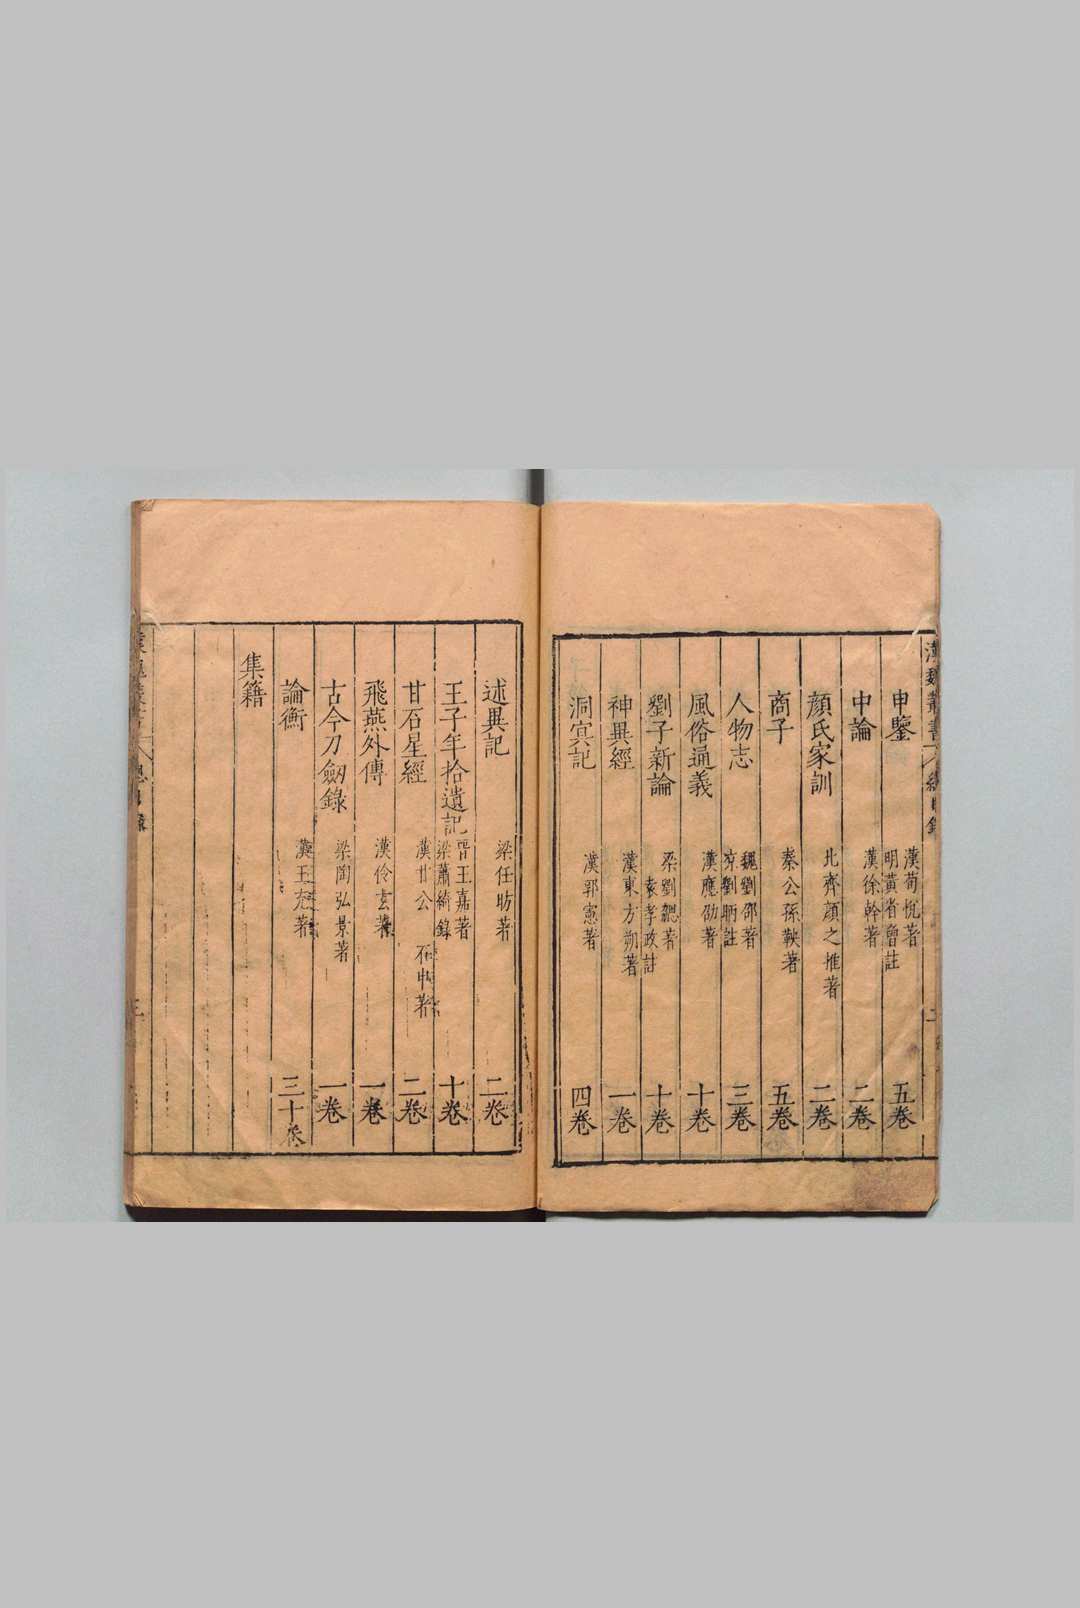 漢魏叢書 總目錄 二
申鑒 漢荀悅著 明黃省曾註 五卷
中論 漢徐幹著 二卷
顏氏家訓 北齊顏之推著 二卷
商子 秦公孫鞅著 五卷
人物志 魏劉邵著 涼劉昞註 三卷
風俗通義 漢應劭著 十卷
劉子新論 梁劉勰著 袁孝政註 十卷
神異經 漢東方朔著 一卷
洞冥記 漢郭憲著 四卷
述異記 梁任昉著 二卷
王子年拾遺記 晉王嘉著 梁蕭綺錄 十卷
甘石星經 漢甘公 石申著 二卷
飛燕外傳 漢伶玄著 一卷
古今刀劒錄 梁陶弘景著 一卷
論衡 漢王充著 三十卷
集籍